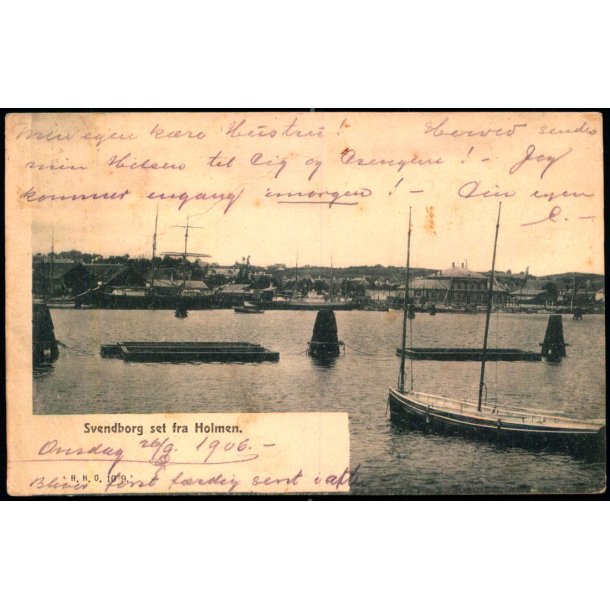 Min egen kære Hustru! Herved sendes
min Hilsen til Dig og Drengene! - Jeg
kommer engang imorgen! - Din egen
C. -
Svendborg set fra Holmen.
Onsdag 26/9. 1906. -
H. H. O. 109.
Bliver først færdig sent i aft